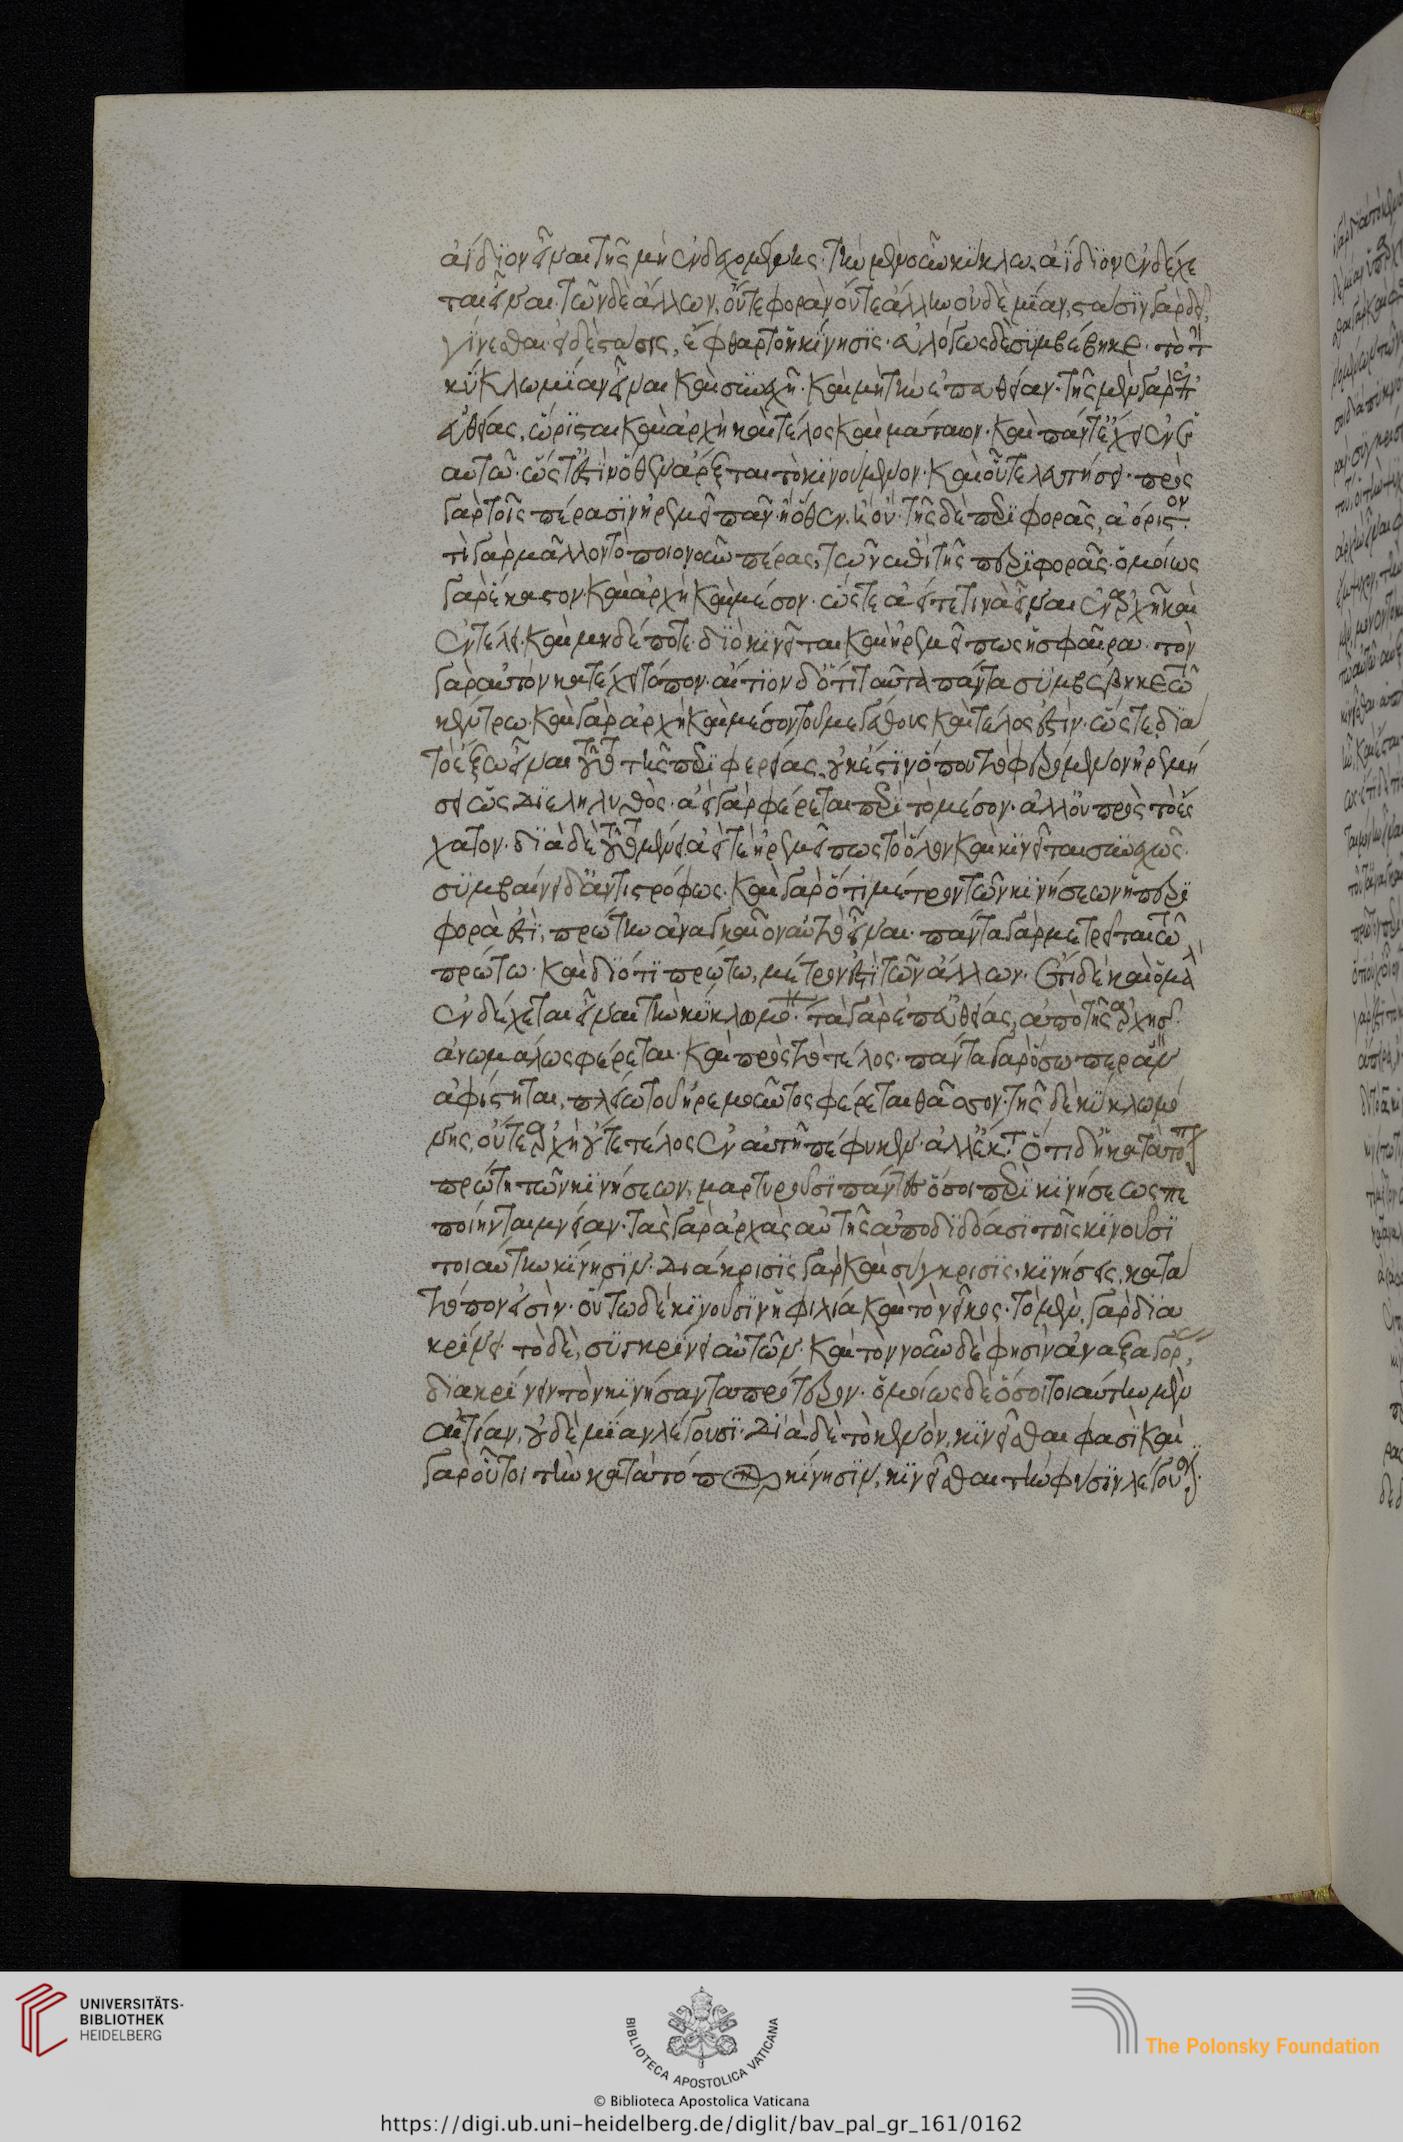 ἀΐδιον εἶναι τῆς μὴ ἐνδεχομένης. τὴν μὲν οὖν κύκλω, ἀΐδιον ἐνδέχε
ται εἶναι. τῶν δὲ ἄλλων, οὔτε φορὰν οὔτε ἄλλην οὐδὲ μίαν, στάσιν γὰρ δεῖ
γίνεσθαι. εἰ δὲ στάσις, ἔφθαρται ἡ κίνησις. εὐλόγως δὲ συμβέβηκε τὸ τὴν
κύκλω μίαν εἶναι καὶ συνεχῆ. καὶ μὴ τὴν ἐπ' εὐθείαν. τῆς μὲν γὰρ ἐπ'
εὐθείας, ὥρισται καὶ ἀρχὴ καὶ τέλος καὶ μέσον. καὶ πάντ' ἔχει ἐν
αυτῶ. ὥστ' ἔστιν ὅθεν ἄρξεται τὸ κινούμενον. καὶ οὗ τελευτήσει. πρὸς
γὰρ τοῖς πέρασιν ἠρεμεῖ πᾶν. ἢ ὅθεν, ἢ οὗ. τῆς δὲ περιφορᾶς, ἀόριστον.
τί γὰρ μᾶλλον τὸ ποιονοῦν πέρας, τῶν ἐπὶ τῆς περιφορᾶς. ὁμοίως
γὰρ ἕκαστον καὶ ἀρχὴ καὶ μέσον. ὥστε ἀεί τε τινὰ εἶναι ἐν ἀρχῆ καὶ
ἐν τέλει. καὶ μηδέποτε. διὸ κινεῖται καὶ ἠρεμεῖ πως ἡ σφαῖρα. τὸν
γὰρ αὐτὸν κατέχει τόπον. αἴτιον δ' ὅτι ταῦτα πάντα συμβέβηκε τῶ
κέντρω. καὶ γὰρ ἀρχὴ καὶ μέσον τοῦ μεγέθους καὶ τέλος ἐστίν. ὥστε διὰ
τὸ ἔξω εἶναι τοῦτο τῆς περιφερείας, οὐκ ἔστιν ὅπου τὸ φερόμενον ἠρεμή
σει ὡς διεληλυθός. ἀεὶ γὰρ φέρεται περὶ τὸ μέσον. ἀλλ' οὐ πρὸς τὸ ἔς
χατον. διὰ δὲ τοῦτο μένει ἀεί τε ἠρεμεῖ πως τὸ ὅλον καὶ κινεῖται συνεχῶς.
συμβαίνει δ' ἀντιστρόφως. καὶ γὰρ ὅτι μέτρον τῶν κινήσεων ἡ περι
φορά ἐστι, πρώτην ἀναγκαῖον αὐτὴν εἶναι. πάντα γὰρ μετρεῖται τῶ
πρώτω. καὶ διότι πρώτω, μέτρον ἐστὶ τῶν ἄλλων. ἔτι δὲ καὶ ὁμαλὴν
ἐνδέχεται εἶναι τὴν κύκλω μόνην. τὰ γὰρ ἐπ' εὐθείας, ἀπὸ τῆς ἀρχῆς
ἀνωμάλως φέρεται. καὶ πρὸς τὸ τέλος. πάντα γὰρ ὅσω περ ἂν
ἀφίστηται, πλείω τοῦ ἠρεμοῦντος φέρεται θᾶσσον. τῆς δὲ κύκλω μό
νης, οὔτε ἀρχὴ οὔτε τέλος ἐν αὐτῆ πέφυκεν. ἀλλ' ἐκτός. ὅτι δ' ἡ κατὰ τόπον
πρώτη τῶν κινήσεων, μαρτυροῦσι πάντες ὅσοι περὶ κινήσεως πε
ποίηνται μνείαν. τὰς γὰρ ἀρχὰς αὐτῆς ἀποδιδόασι τοῖς κινοῦσι
τοιαύτην κίνησιν. διάκρισις γὰρ καὶ σύγκρισις, κινήσεις κατὰ
τόπον εἰσίν. οὕτω δὲ κινοῦσιν ἡ φιλία καὶ τὸ νεῖκος. τὸ μὲν, γὰρ δια
κρίνει. τὸ δὲ, συγκρίνει αὐτῶν. καὶ τὸν νοῦν δέ φησιν ἀναξαγόρας
διακρίνειν τὸν κινήσαντα πρότερον. ὁμοίως δὲ ὅσοι τοιαύτην μὲν
αἰτίαν, οὐδὲ μίαν λέγουσι. διὰ δὲ τὸ κενὸν, κινεῖσθαι φασὶ. καὶ
γὰρ οὗτοι τὴν κατὰ τόπον κίνησιν, κινεῖσθαι τὴν φύσιν λέγουσιν.
UNIVERSITÄTS-
BIBLIOTHEK
HEIDELBERG
BIBLIOTECA APOSTOLICA VATICANA
© Biblioteca Apostolica Vaticana
The Polonsky Foundation
https://digi.ub.uni-heidelberg.de/diglit/bav_pal_gr_161/0162